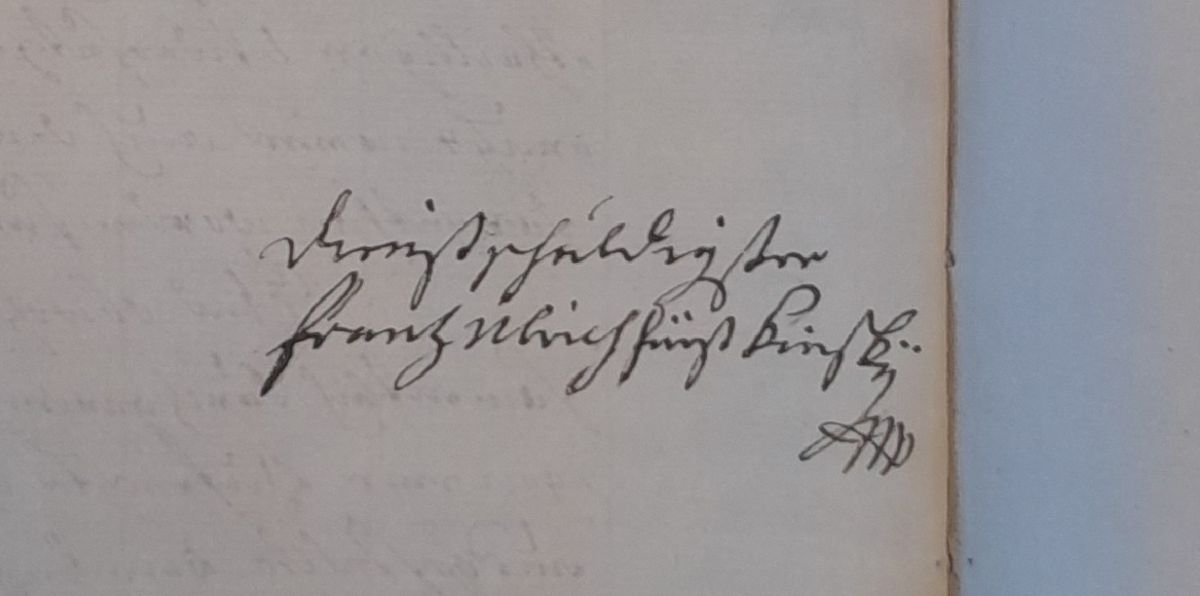 dienstschuldigster
Frantz Ulrich fürst Kinskÿ